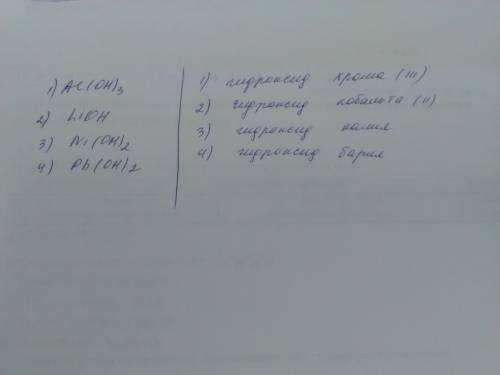 1) Al(OH)3
2) LiOH
3) Ni(OH)2
4) Pb(OH)2
1) гидроксид хрома (III)
2) гидроксид кобальта (II)
3) гидроксид калия
4) гидроксид бария